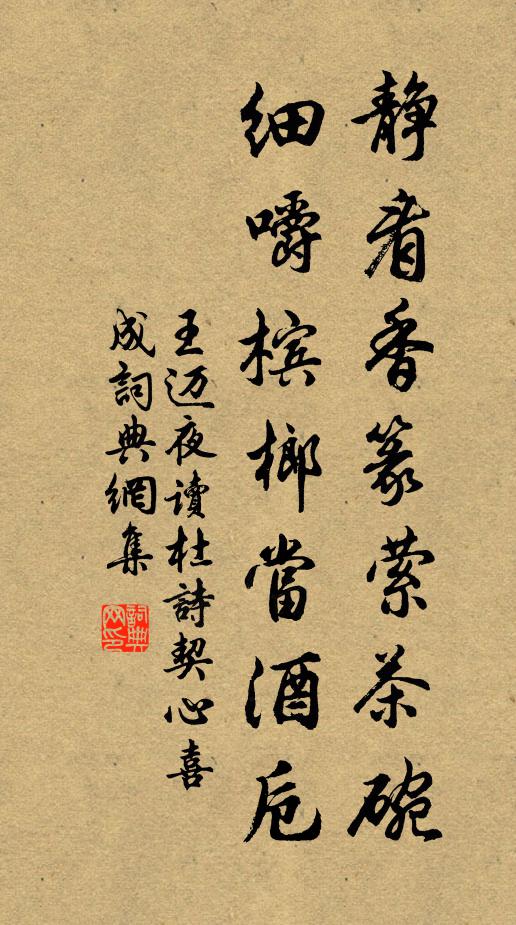 静看香篆萦茶碗
细嚼槟榔當酒卮
王迈夜讀杜詩契心喜
成詞典網集
詞典
网印